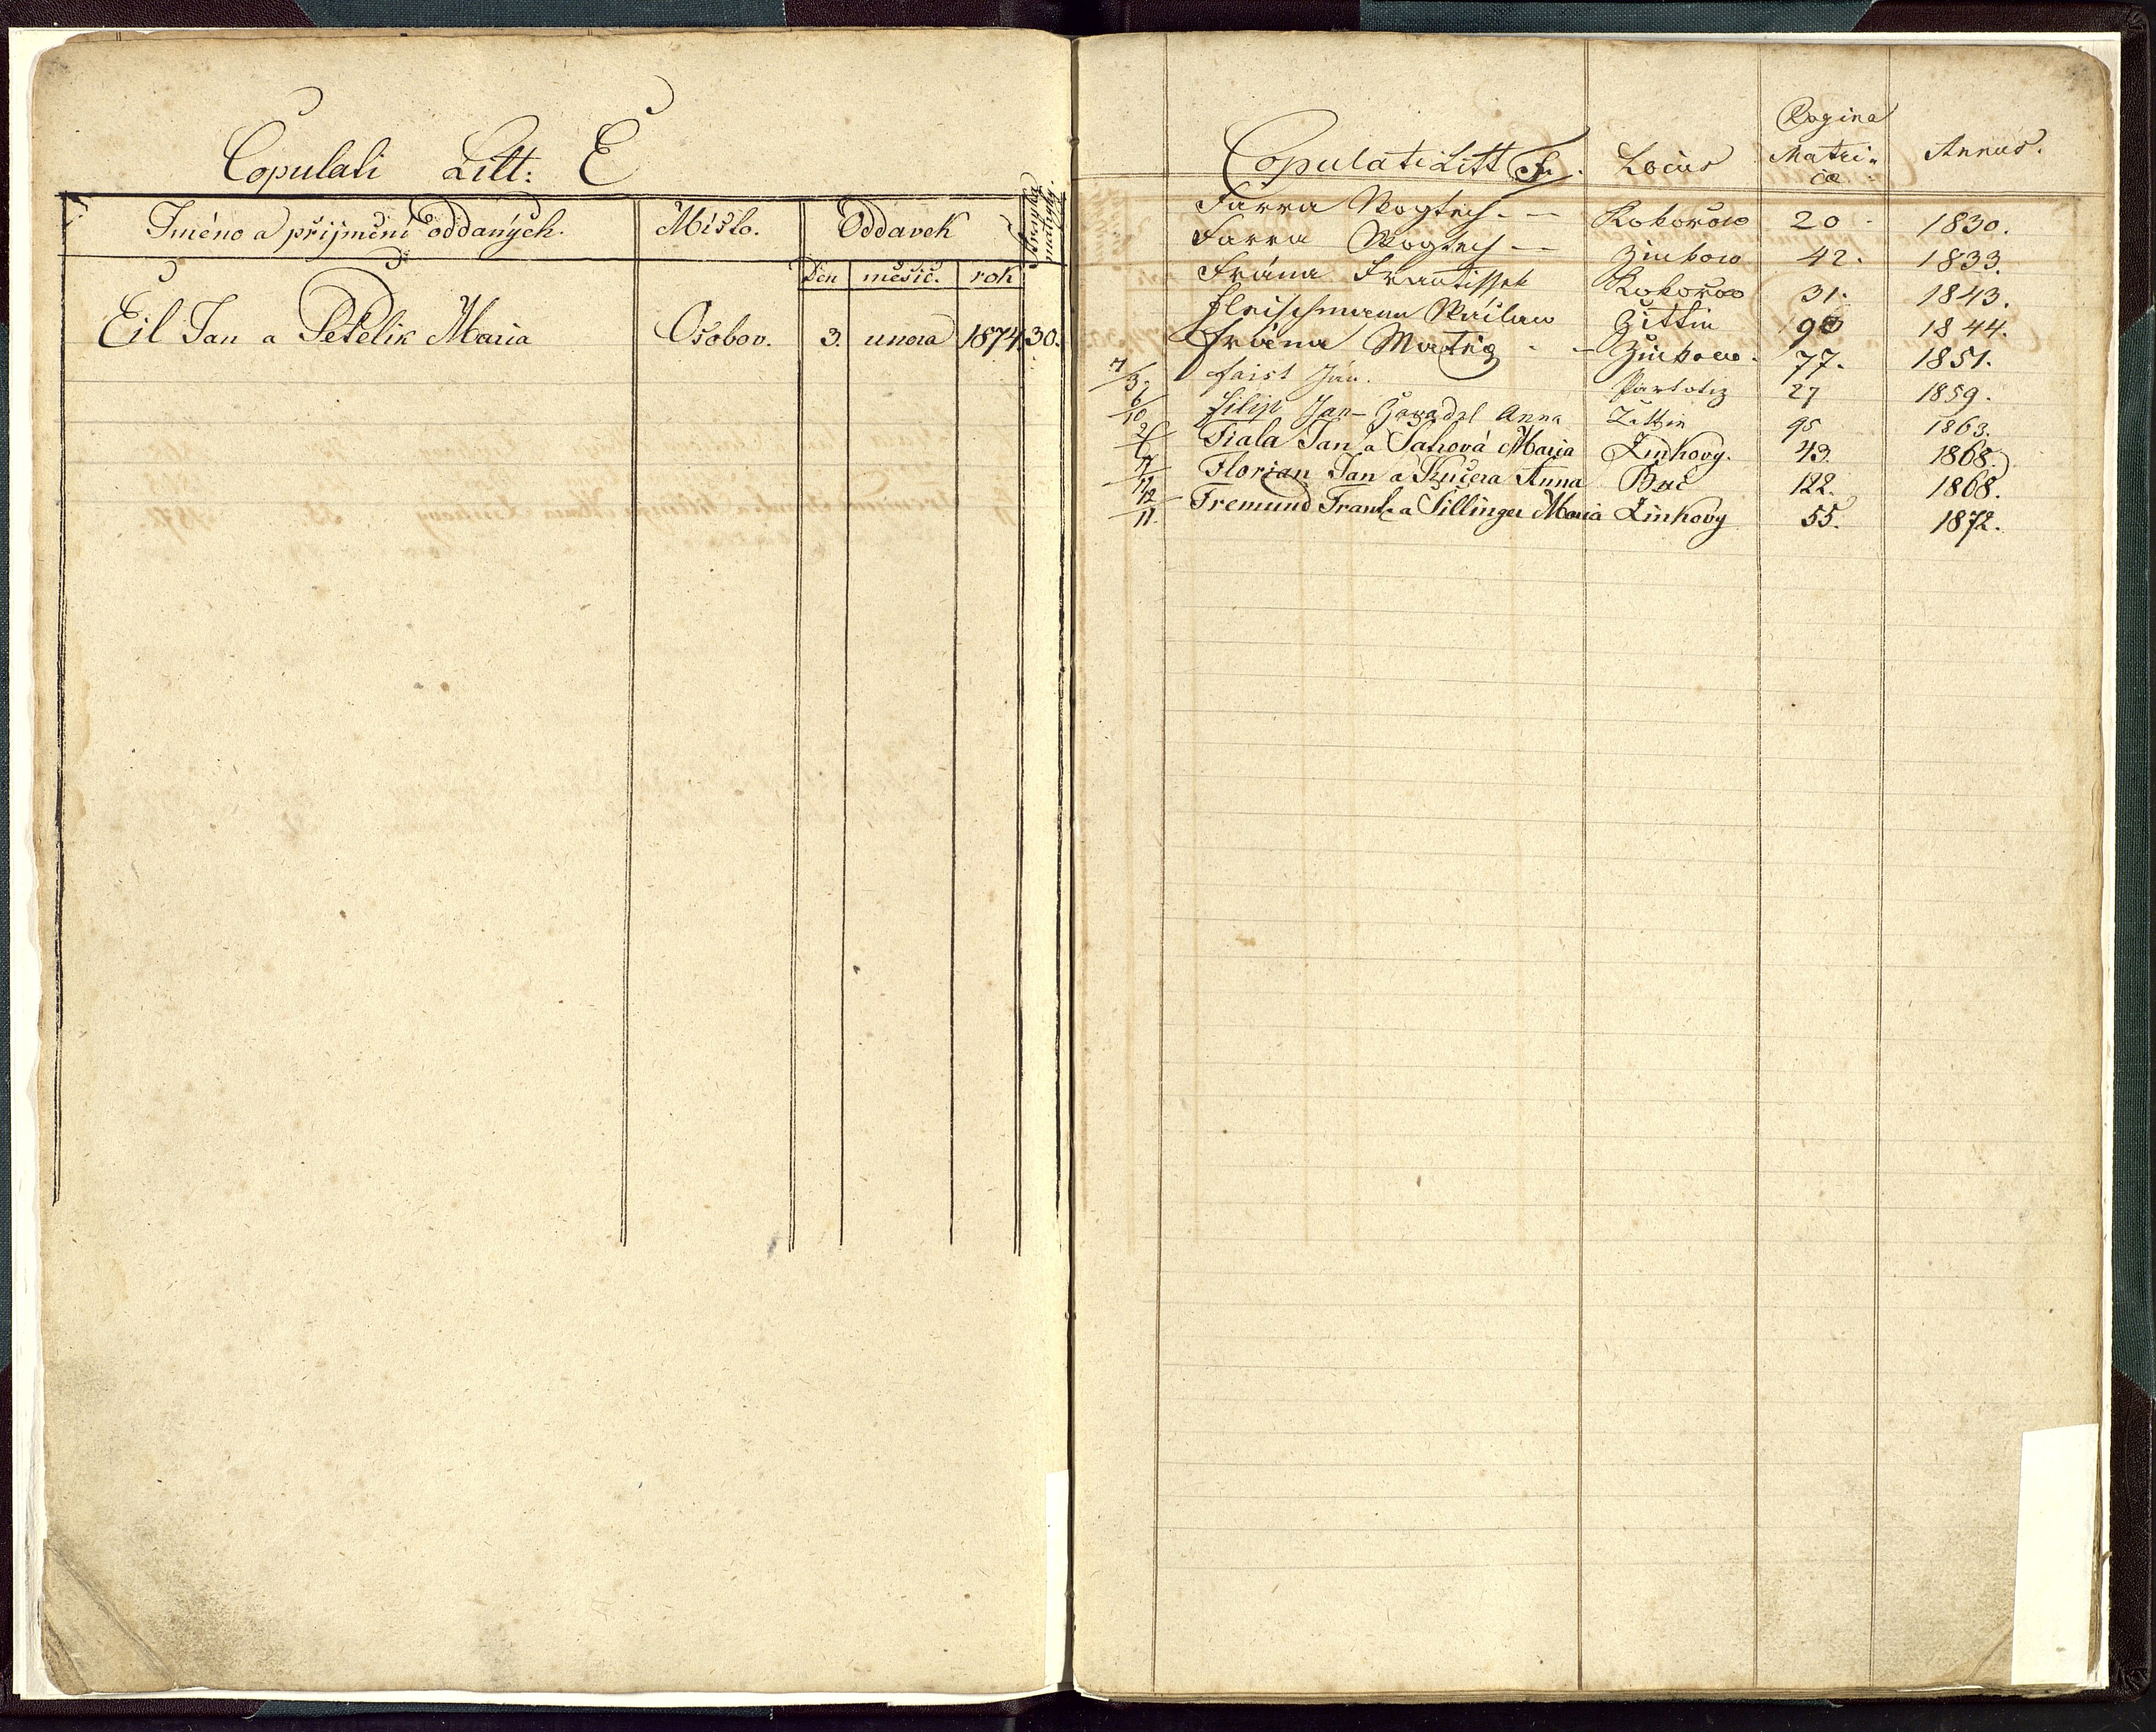 Copulati Litt: E
Jméno a přijmění Oddaných. Místo. Oddavek Stránka matriky.
Den měsíc. rok
Eil Jan a Petelik Maria Osobov. 3. unora 1874 30.
Copulati Litt F. Locus Pagina Matricæ Annus.
Farra Wogtech. — Kokořow 20 1830.
Farra Wogtech — Zinkow 42. 1833.
Frána Frantissek Kokořow 31. 1843.
Fleischmann Wáclaw Žittin 90 1844.
Frána Matěg - — Zinkow. 77. 1851.
7/3. Faist Jan. Partotiz 27 1859.
6/10 Filip Jan — Anna Žittin 95 1863.
Fiala Jan a Maria Zinkovy. 43. 1868.
Florian Jan a Kučera Anna 122. 1868.
12/11. Fremund Frant. a Sillinger Maria Zinkovy 55. 1872.